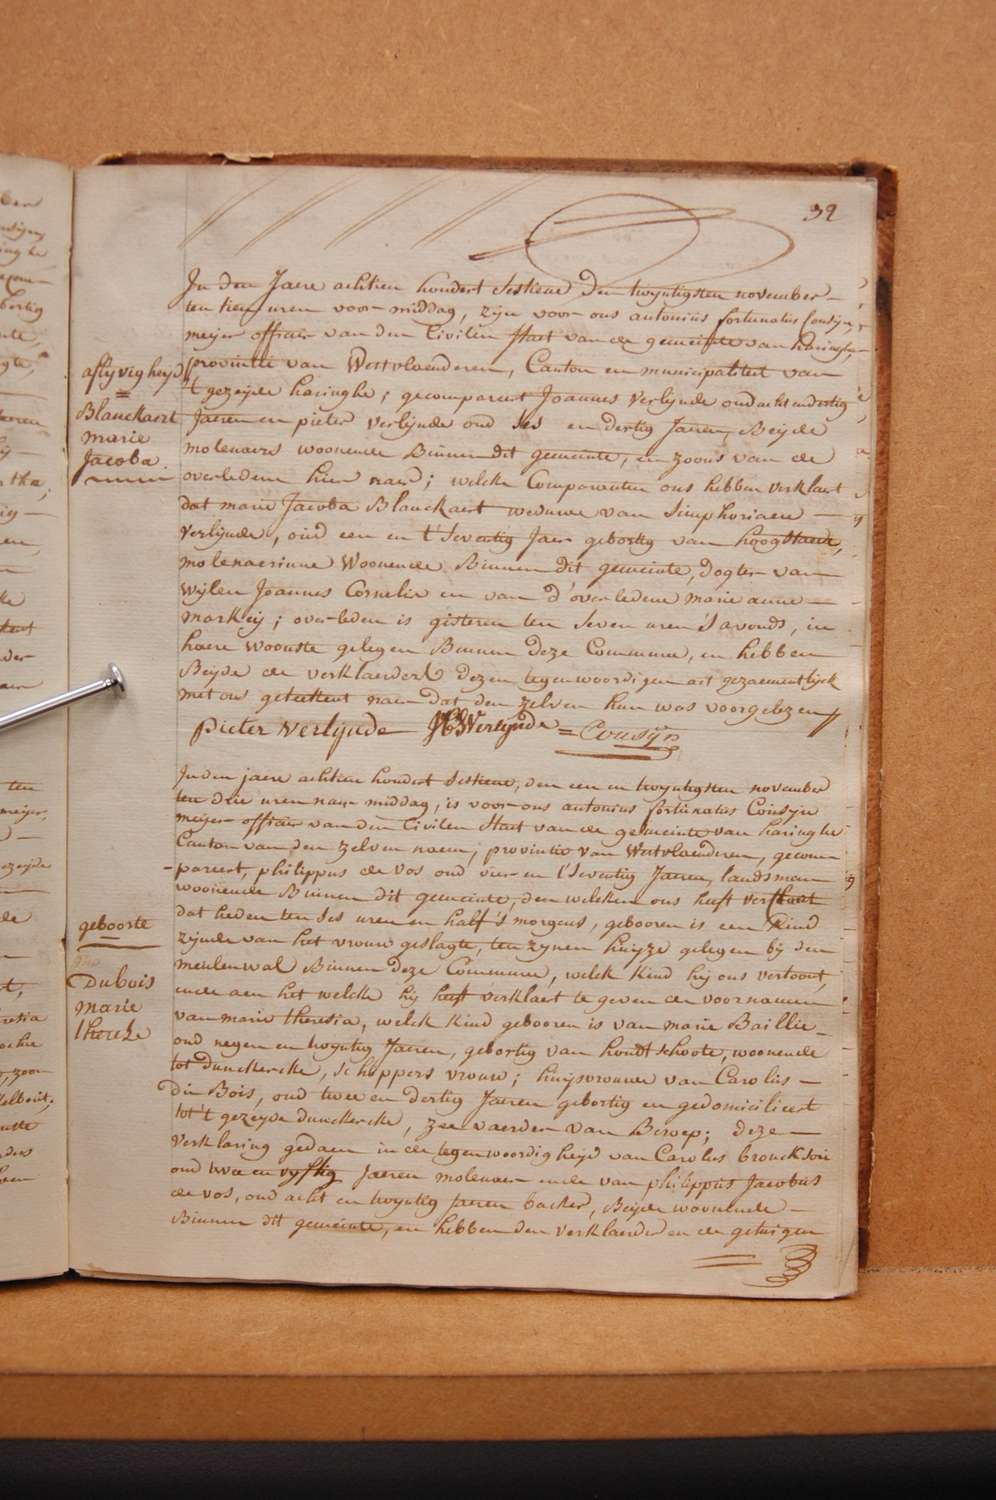 32
In den Jaere achtien hondert sestiene den twyntigsten november
ten tien uren voor middag, zijn voor ons antonius fortunatus Cousijn,
meijer officier van den Civilen staet van de gemeinte van haringhe
provintie van Westvlaenderen, Canton en municipaliteit van
't gezeijde haringhe; gecompareert Joannes Verlijnde oud acht en dertig
Jaeren en pieter Verlijnde oud ses en dertig Jaeren, Beijde
molenaers woonende Binnen dit gemeinte, en zoons van de
overledene hier naer; welke Comparanten ons hebben verklaert
dat marie Jacoba Blanckaert weduwe van Simphoriaen
Verlijnde, oud een en t'seventig Jaer gebortig van hoogstaede,
molenaerinne Woonende Binnen dit gemeinte, dogter van
Wijlen Joannes Cornelis en van d'overledene marie anne
markeij; overleden is gisteren ten seven uren s'avonds, in
haere Woonste gelegen Binnen deze Commune, en hebben
Beijde de verklaerders dezen tegenwoordigen act gezaementlijck
met ons geteekent naer dat den zelven hun was voorgelezen
Pieter Verlijnde J B Verlynde = Cousijn
aflijvigheijd
Blanckaert
marie
Jacoba
In den jaere achtien hondert sestiene, den een en twyntigsten november
ten drie uren naer middag, is voor ons antonius fortunatus Cousijn
meijer officier van den Civilen staet van de gemeinte van haringhe
Canton van den zelven naem, provintie van Westvlaenderen, gecom-
-pareert, philippus de vos oud vier en t'seventig Jaeren, landsman
woonende Binnen dit gemeinte, den welken ons heeft verklaert
dat heden ten ses uren en half 's morgens, gebooren is een kind
zijnde van het vrouw geslagte, ten zijnen huijze gelegen bij den
meulenwal Binnen deze Commune, welk kind hij ons vertoont,
ende aen het welke hij heeft verklaert te geven de voornamen
van marie theresia, welck kind gebooren is van marie Baillie
oud negen en twyntig Jaeren, gebortig van hondtschoote, woonende
tot dunckercke, schippers vrouw; huijsvrouwe van Carolus
du Bois, oud twee en dertig Jaeren gebortig en gedomicilieert
tot 't gezeyde dunckercke, zee vaerder van Beroep; deze
verklaring gedaen in de tegenwoordigheijd van Carolus
oud twee en vyftig Jaeren molenaer ende van philippus Jacobus
de vos, oud acht en twyntig Jaeren backer, Beijde woonende
Binnen dit gemeinte, en hebben den verklaerder en de getuigen
geboorte
Dubois
marie
therese